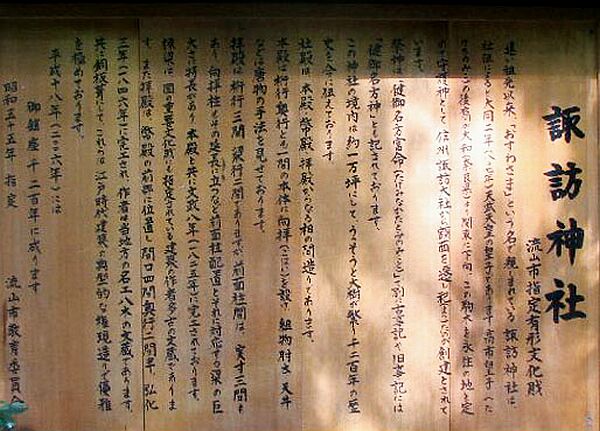 諏訪神社
流山市指定有形文化財
遠い祖先以来、「おすわさま」という名で親しまれている諏訪神社は
社伝によると大同二年(八〇七年)天武天皇の皇子であります高市皇子(た
の守護神として信州諏訪大社から
います。
祭神は「健御名方富命」(たけみなかたとみのみこと)で別に古事記や旧事記には
「健御名方神」とも記されております。
この神社の境内は約一万坪にして、うっそうと大樹が繁り千二百年の歴
史を今に伝えております
社殿は、本殿、幣殿、拝殿からなる相の間造りであります。
本殿は桁行奥行とも一間の本体に向拝(こはい)を設け、組物肘木、天井
などは唐物の手法を見せております。
拝殿は桁行三間、梁行二間でありますが、前面柱間は、実寸三間も
あり、向拝柱もその延長に立つなど前面柱配置とそれに対応する梁の巨
大さに特長があり、本殿と共に天保八年(一八三五年)に完工されております。
様梁は、国の重要文化財にも指定されている建築の作者多古の文蔵でありま
す。また拝殿は、幣殿の前部に位置し間口四間奥行二間半、弘化
三年(一八四六年)に完工され、作者は当地方の名工八木の文蔵であります。
共に銅板葺にて、これらは江戸時代建築の典型的な権現造りで優雅
を極めております。
平成十八年(二〇〇六年)には
御鎮座千二百年に成ります
昭和五十五年 指定
流山市教育委員会